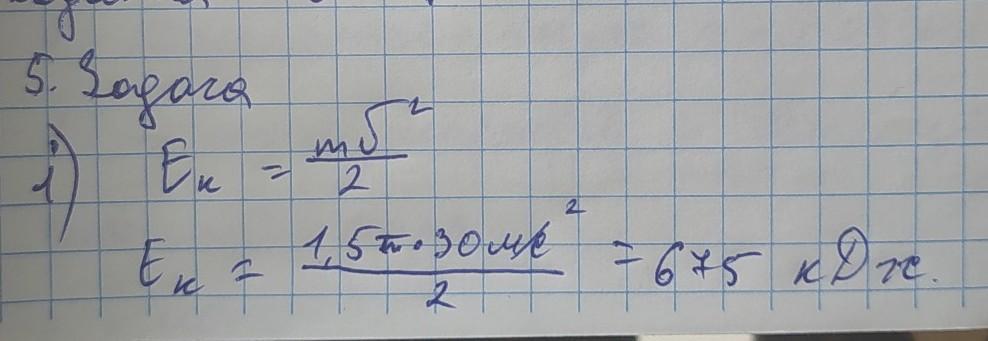 5. Задача
1) Eк = mυ²/2
Eк = 1,5т·30м/с²/2 = 675 кДж.